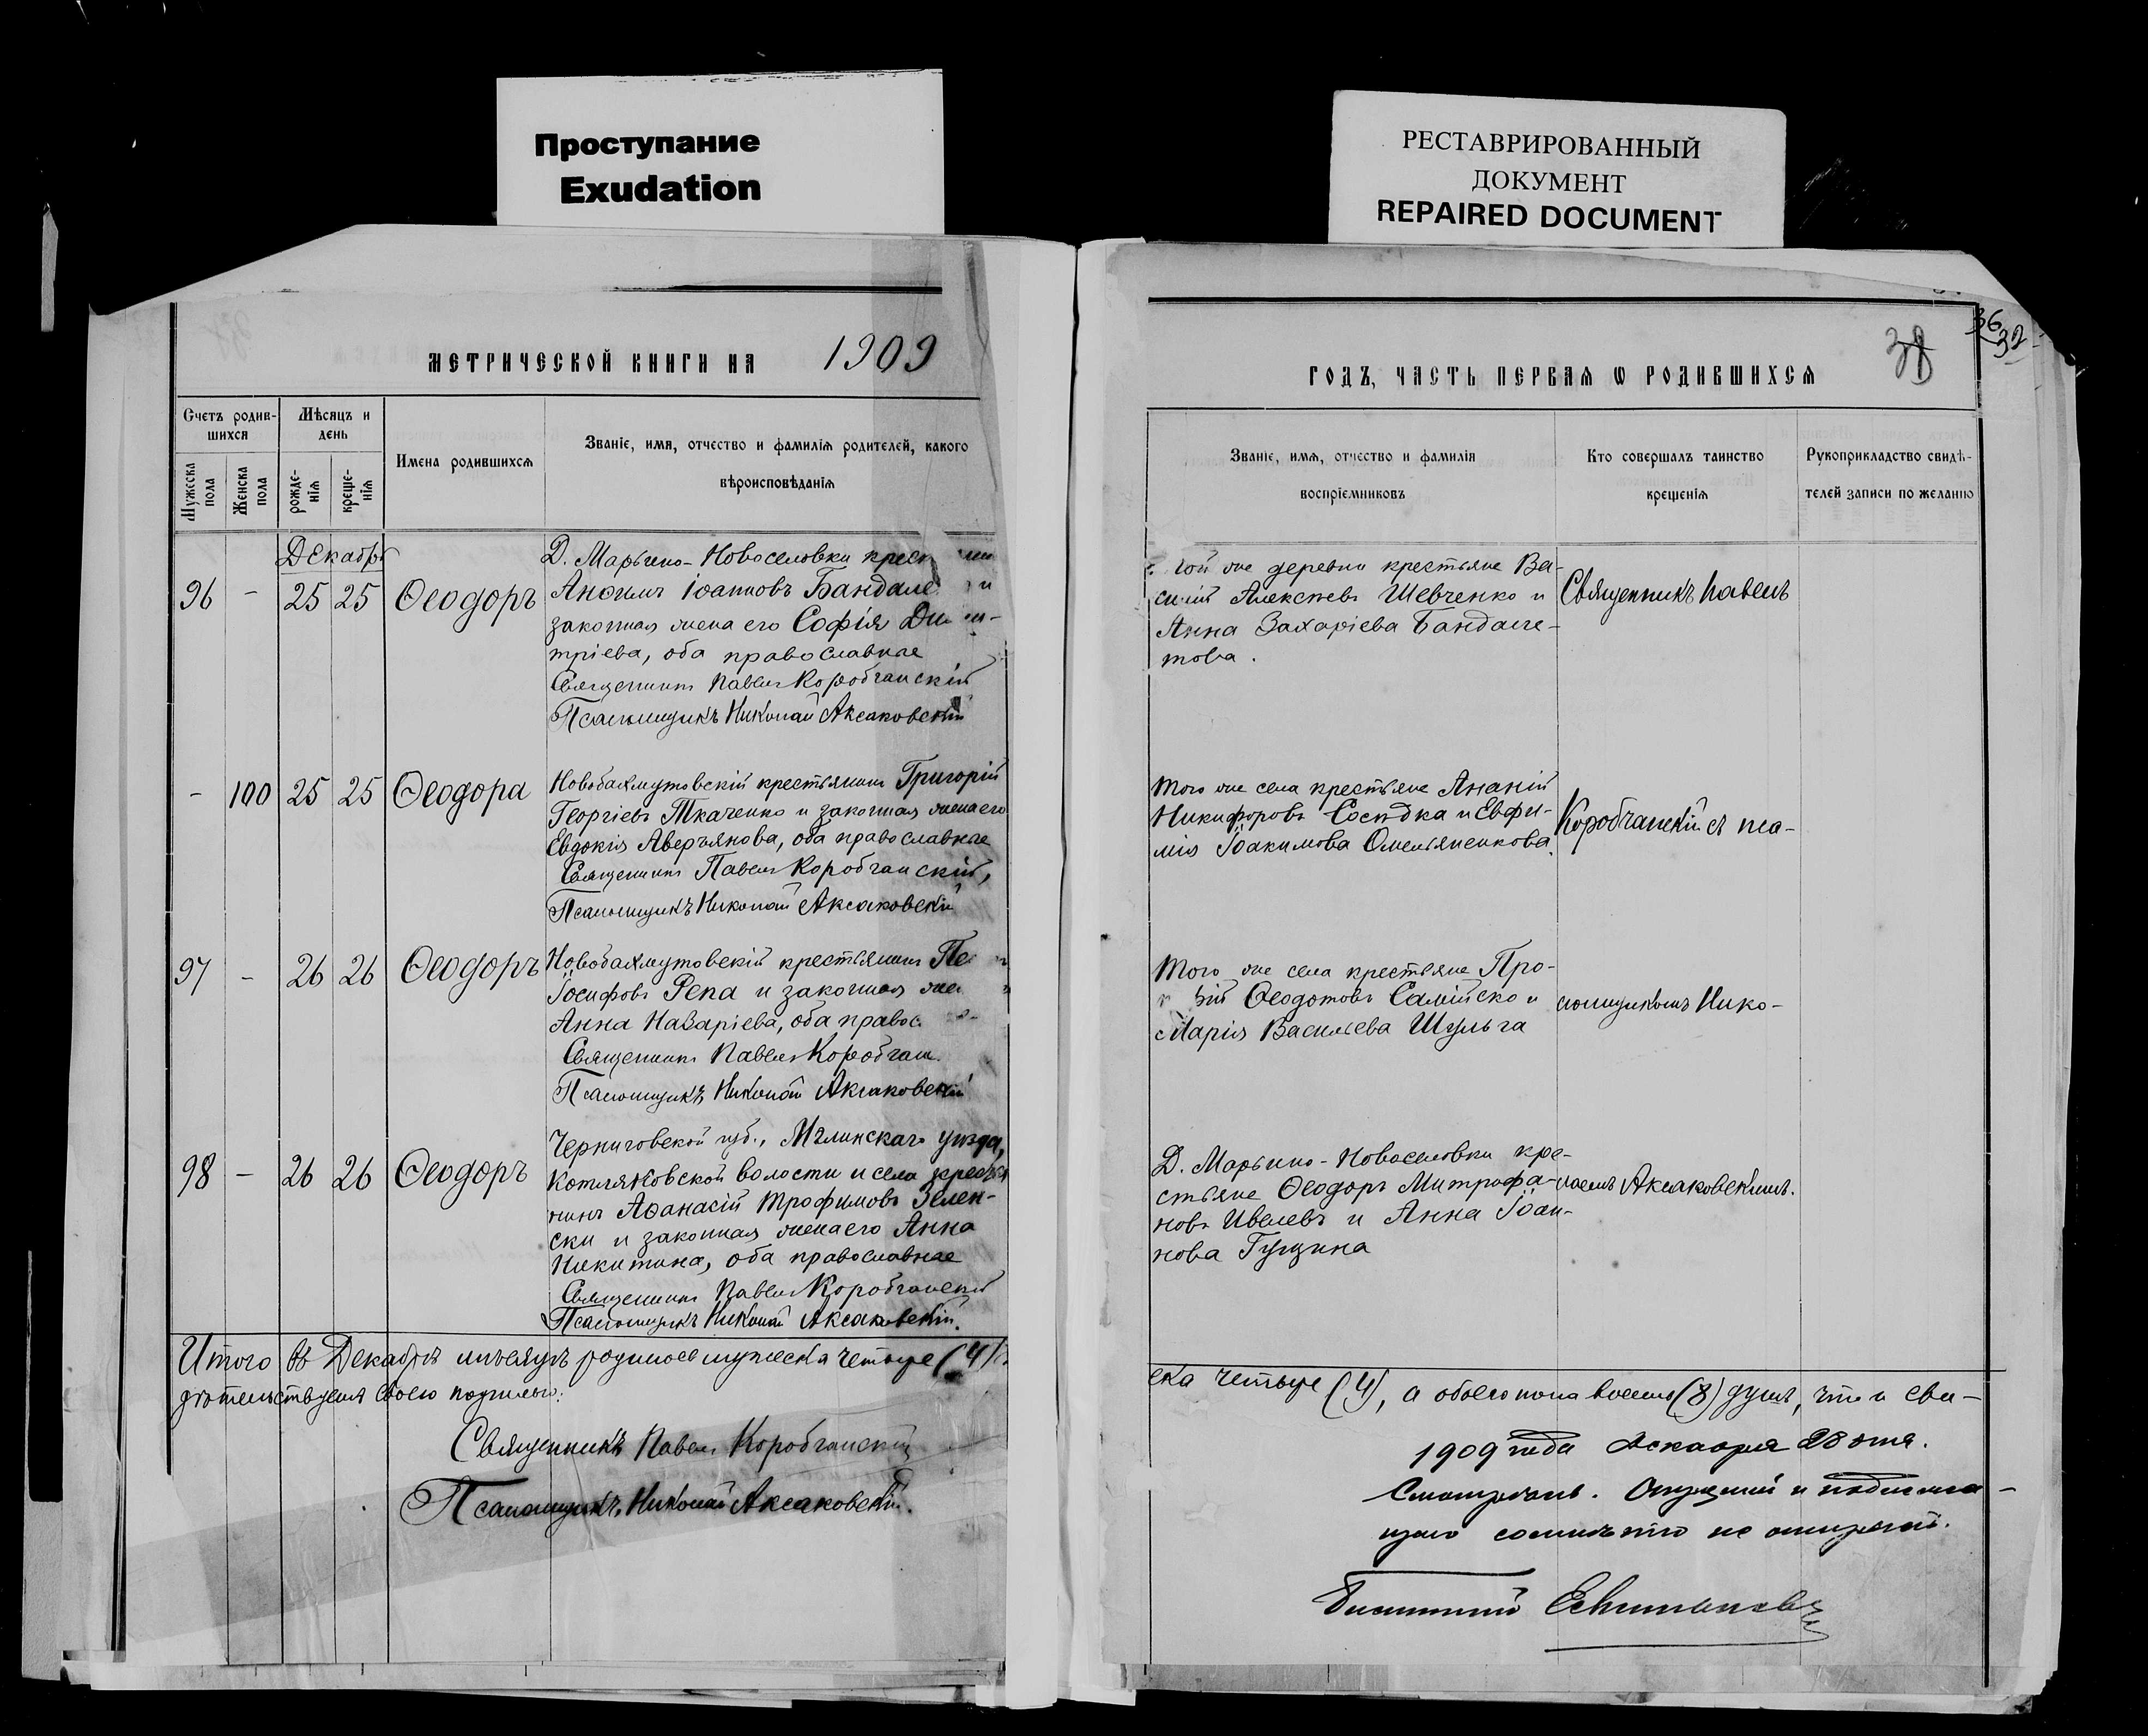 Проступание
Exudation
РЕСТАВРИРОВАННЫЙ
ДОКУМЕНТ
REPAIRED DOCUMENT
МЕТРИЧЕСКОЙ КНИГИ НА 1909
Счетъ родив-
шихся
Мужеска пола
Женска пола
Мѣсяцъ и
день
рожде-
нія
креще-
нія
Имена родившихся
Званіе, имя, отчество и фамилія родителей, какого
вѣроисповѣданія
Декабрь
96 - 25 25 Ѳеодоръ
Д. Марьино-Новоселовки
Анѳимъ Іоанновъ
законная жена его Софія
тріева, оба православные
Священникъ Павелъ Коробчанскій
Псаломщикъ Николай Аксаковскій
- 100 25 25 Ѳеодора
Новобахмутовскій крестьянинъ Григорій
Георгіевъ Ткаченко и законная жена его
Евдокія Аверьянова, оба православные
Священникъ Павелъ Коробчанскій,
Псаломщикъ Николай Аксаковскій
97 - 26 26 Ѳеодоръ
Новобахмутовскій крестьянинъ
Іосифовъ Репа и законная
Анна Назаріева, оба
Священникъ Павелъ
Псаломщикъ Николай Аксаковскій
98 - 26 26 Ѳеодоръ
Черниговской губ., Мглинскаго уѣзда,
Котляковской волости и села
нинъ Аѳанасій Трофимовъ Зелен-
ски и законная жена его Анна
Никитина, оба православные
Священникъ Павелъ Коробчанскій
Псаломщикъ Николай Аксаковскій.
Итого въ Декабрѣ мѣсяцѣ родилось мужеска четыре (4)
дѣтельствуемъ своею подписью:
Священникъ Павелъ Коробчанскій
Псаломщикъ Николай Аксаковскій.
36
32
38
ГОДЪ, ЧАСТЬ ПЕРВАЯ Ѡ РОДИВШИХСЯ
Званіе, имя, отчество и фамилія
воспріемниковъ
Кто совершалъ таинство
крещенія
Рукоприкладство свидѣ-
телей записи по желанію
той же деревни крестьяне Ва-
силій Алексѣевъ Шевченко и
Анна Захаріева
това.
Священникъ Павелъ
Того же села крестьяне Ананій
Никифоровъ Сосѣдка и Евфи-
мія Іоакимова Омельяненкова.
Коробчанскій съ пса-
Того же села крестьяне Про-
Ѳеодотовъ и
Марія Васильева Шульга
ломщикомъ Нико-
Д. Марьино-Новоселовки кре-
стьяне Ѳеодоръ Митрофа-
новъ Ивлевъ и Анна Іоан-
нова Гущина
лаемъ Аксаковскимъ.
ска четыре (4), а обоего пола восемь (8) душъ, что и сви-
1909 года Декабря 28 дня.